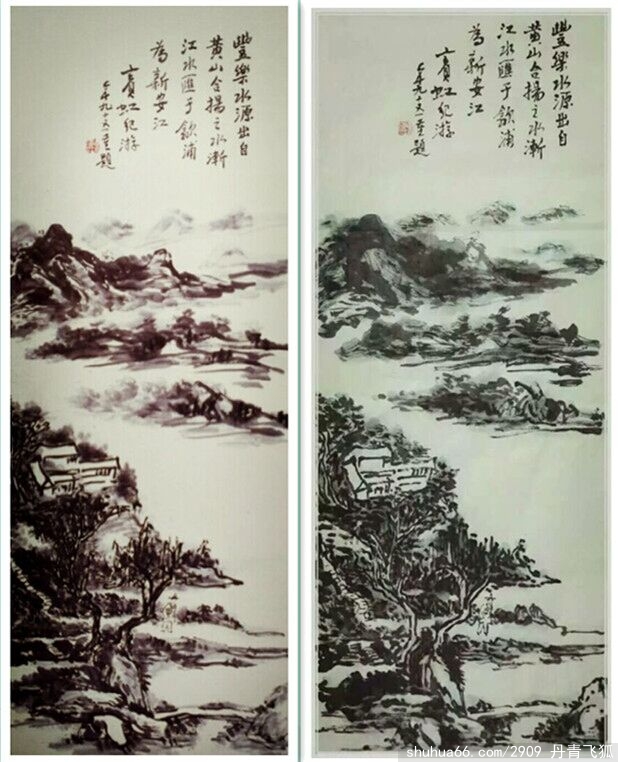 豐樂水源出自
黃山合揚之水漸
江水匯于歙浦
為新安江
賓虹紀游
午九十又一重題
豐樂水源出自
黃山合揚之水漸
江水匯于歙浦
為新安江
賓虹紀游
午九十又一重題
shuhua66.com/2909 丹青飞狐